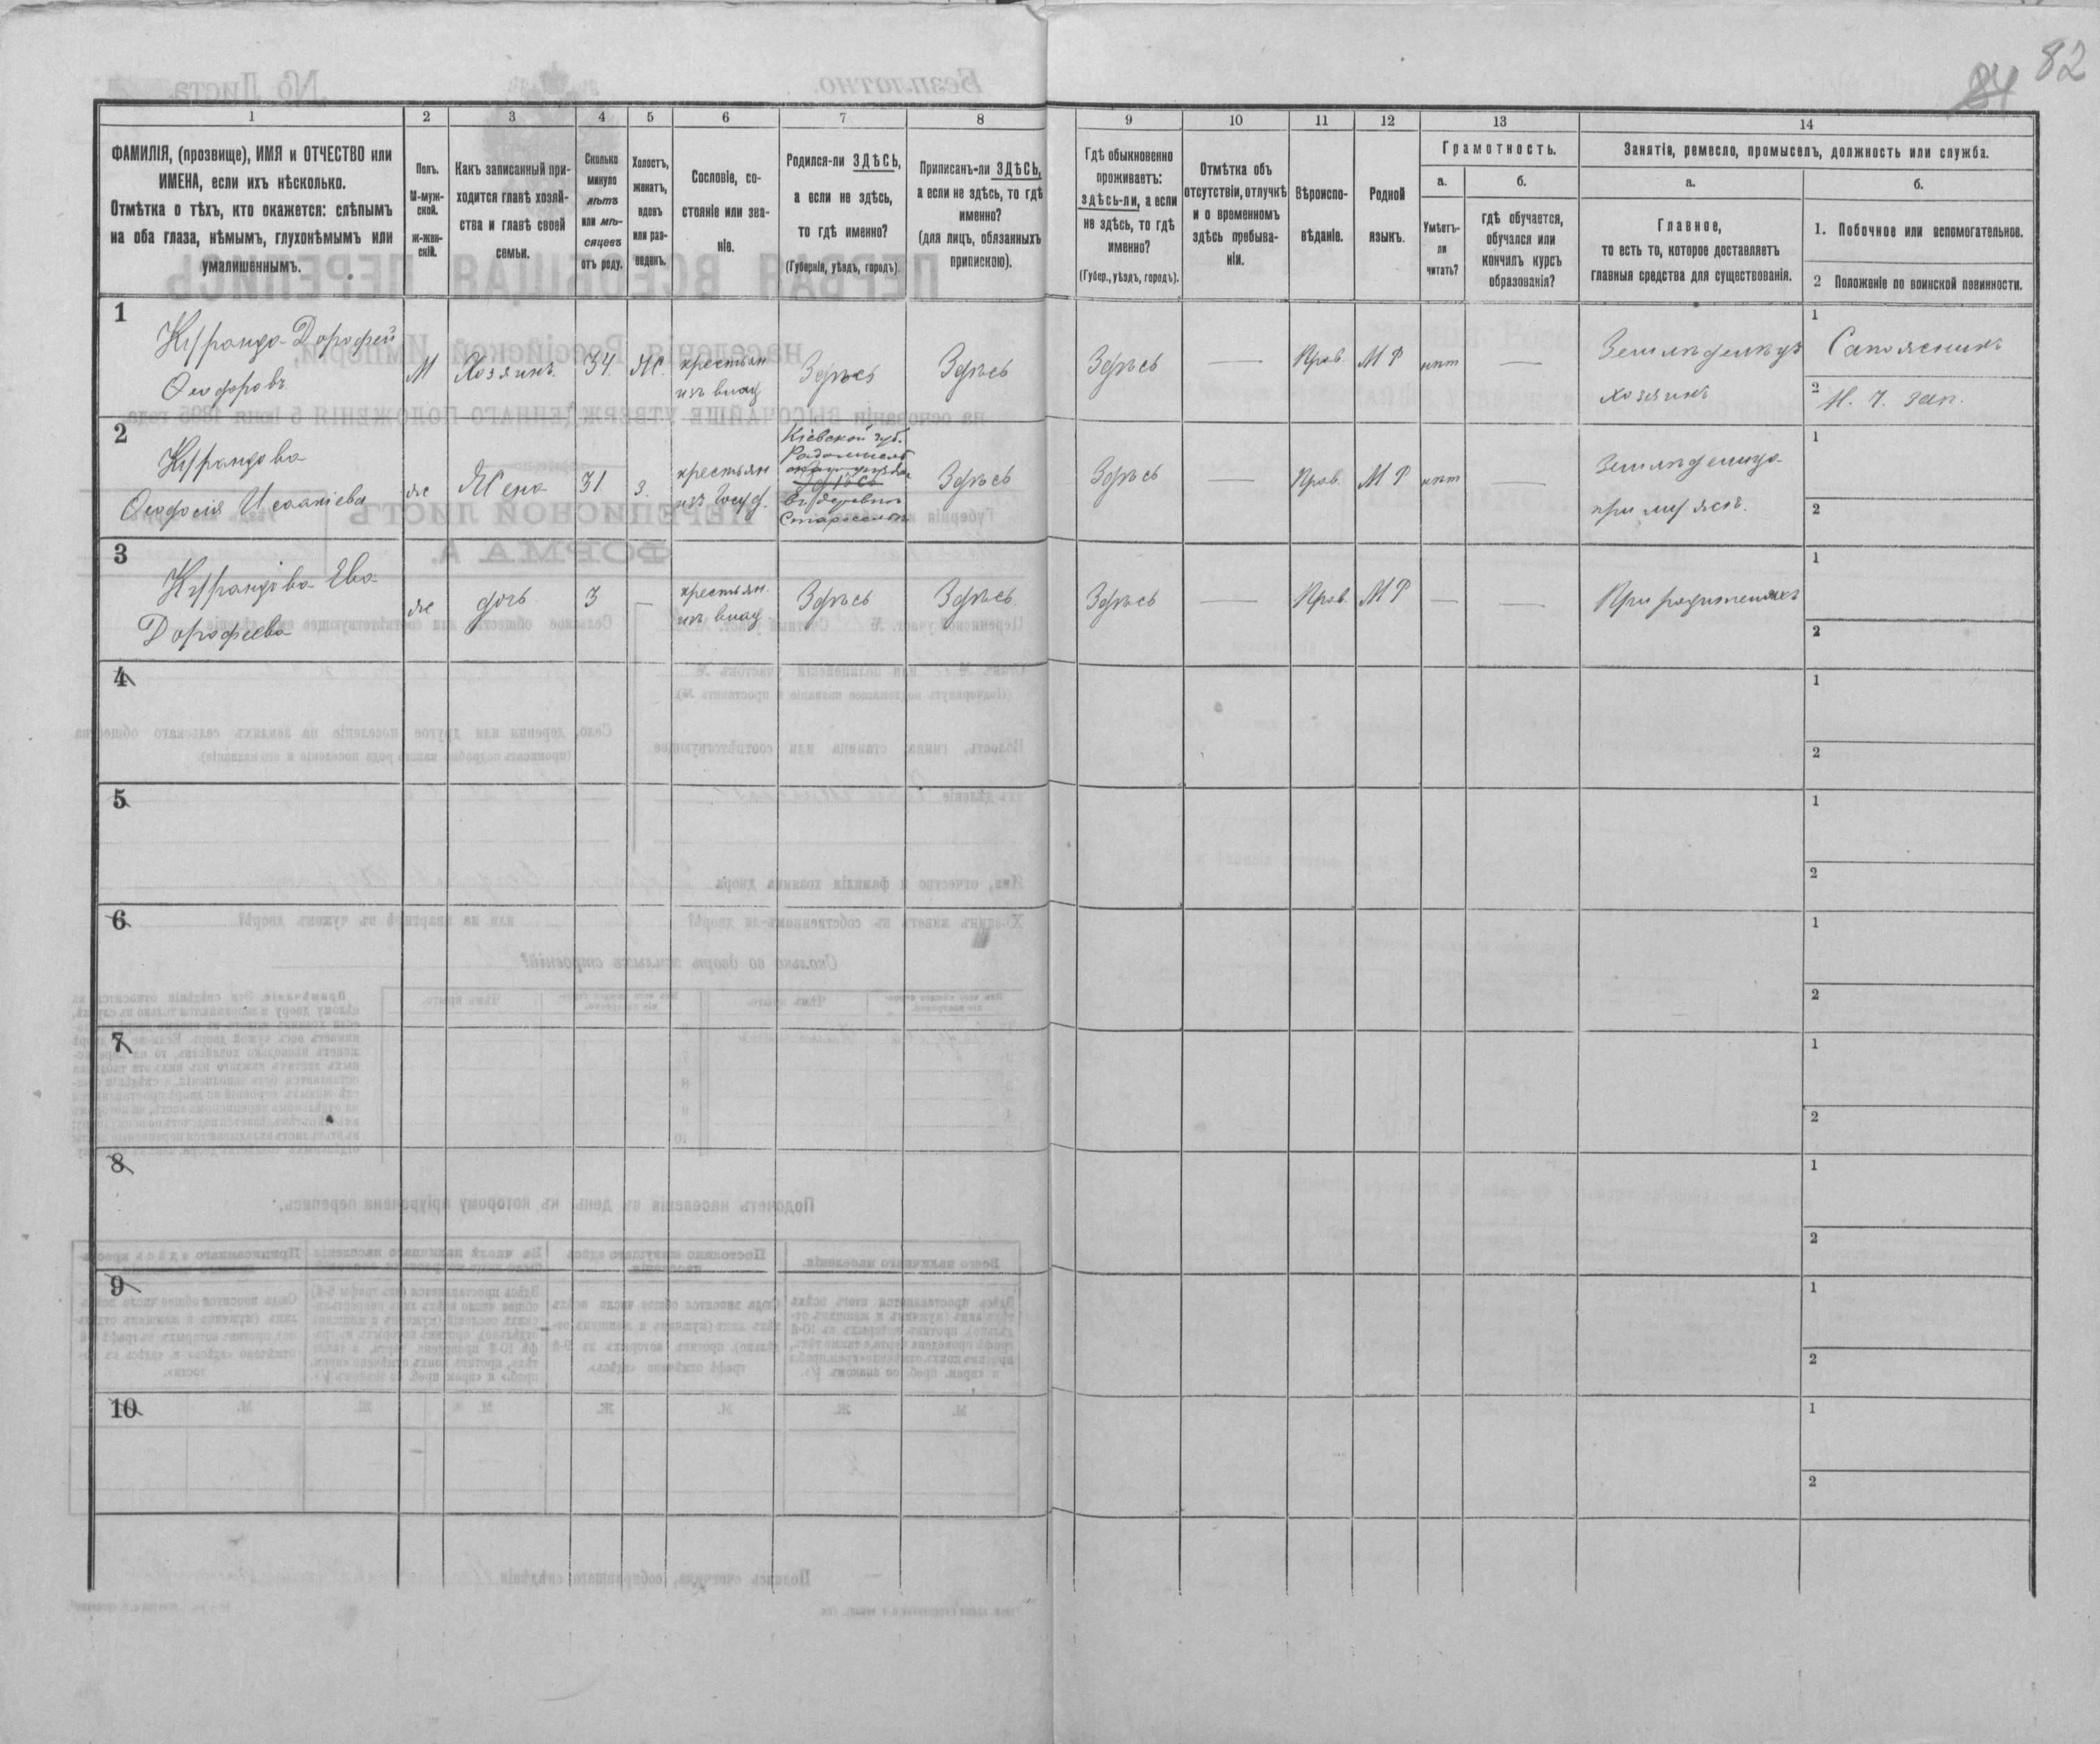 82
84
1
2
3
4
5
6
7
8
9
10
11
12
13
14
ФАМИЛІЯ, (прозвище), ИМЯ и ОТЧЕСТВО или
ИМЕНА, если ихъ нѣсколько.
Отмѣтка о тѣхъ, кто окажется: слѣпымъ
на оба глаза, нѣмымъ, глухонѣмымъ или
умалишеннымъ.
Полъ.
М-муж-
ской.
ж-жен-
скій.
Какъ записанный при-
ходится главѣ хозяй-
ства и главѣ своей
семьи.
Сколько
минуло
лѣтъ
или мѣ-
сяцевъ
отъ роду.
Холостъ,
женатъ,
вдовъ
или раз-
веденъ.
Сословіе, со-
стояніе или зва-
ніе.
Родился-ли ЗДѢСЬ,
а если не здѣсь,
то гдѣ именно?
(Губернія, уѣздъ, городъ).
Приписанъ-ли ЗДѢСЬ,
а если не здѣсь, то гдѣ
именно?
(для лицъ, обязанныхъ
припискою).
Гдѣ обыкновенно
проживаетъ:
здѣсь-ли, а если
не здѣсь, то гдѣ
именно?
(Губер., уѣздъ, городъ).
Отмѣтка объ
отсутствіи, отлучкѣ
и о временномъ
здѣсь пребыва-
ніи.
Вѣроиспо-
вѣданіе.
Родной
языкъ.
Грамотность.
а.
Умѣетъ-
ли
читать?
б.
гдѣ обучается,
обучался или
кончилъ курсъ
образованія?
Занятіе, ремесло, промыселъ, должность или служба.
а.
Главное,
то есть то, которое доставляетъ
главныя средства для существованія.
б.
1. Побочное или вспомогательное.
2 Положеніе по воинской повинности.
1
Дорофей
Ѳеодоровъ
М
Хозяинъ.
34
Ж.
крестьян
изъ влад
Здѣсь
Здѣсь
Здѣсь
—
Прав.
М Р
нѣт
—
Земледѣлецъ
хозяинъ
1
Сапожникъ
2
Н. ч. зап.
2
Ѳеодосія Исаакіева
же
Жена
31
з.
крестьян
изъ Госуд.
Кіевской губ.
Радомысль
Здѣсь
въ деревнѣ
Здѣсь
Здѣсь
—
Прав.
М Р
нѣт
—
Земледѣлица
при мужѣ.
1
2
3
Ева
Дорофеева
же
дочь
3
—
крестьян.
изъ влад.
Здѣсь
Здѣсь
Здѣсь
—
Прав.
М Р
—
—
При родителяхъ
1
2
4
1
2
5
1
2
6
1
2
7
1
2
8
1
2
9
1
2
10
1
2